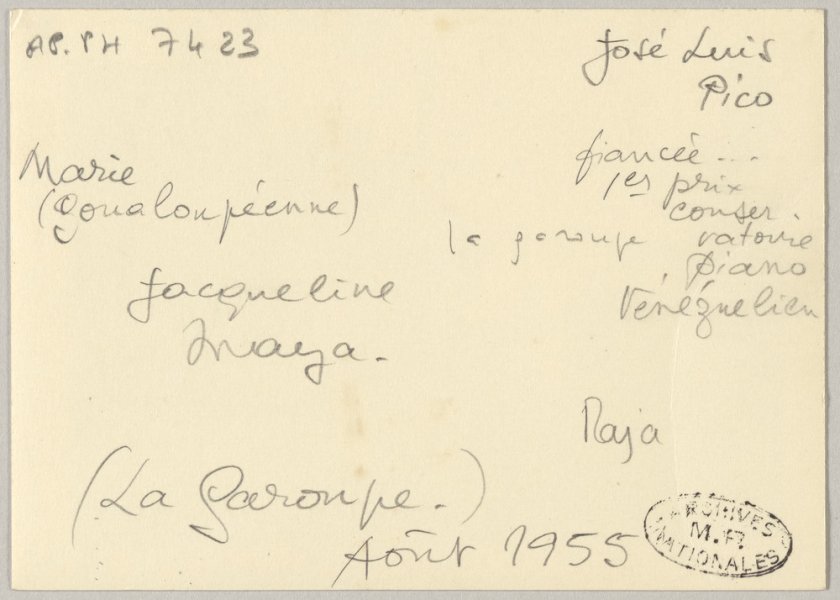 AP.PH 7423
José Luis
Pico
fiancée...
1er prix
conser.
vatoire
piano
Vénézuelien
Marie
(goualoupéenne)
la garoupe
Jacqueline
Maya.
Maja
(La Garoupe.)
Août 1955
ARCHIVES
M.P.
NATIONALES